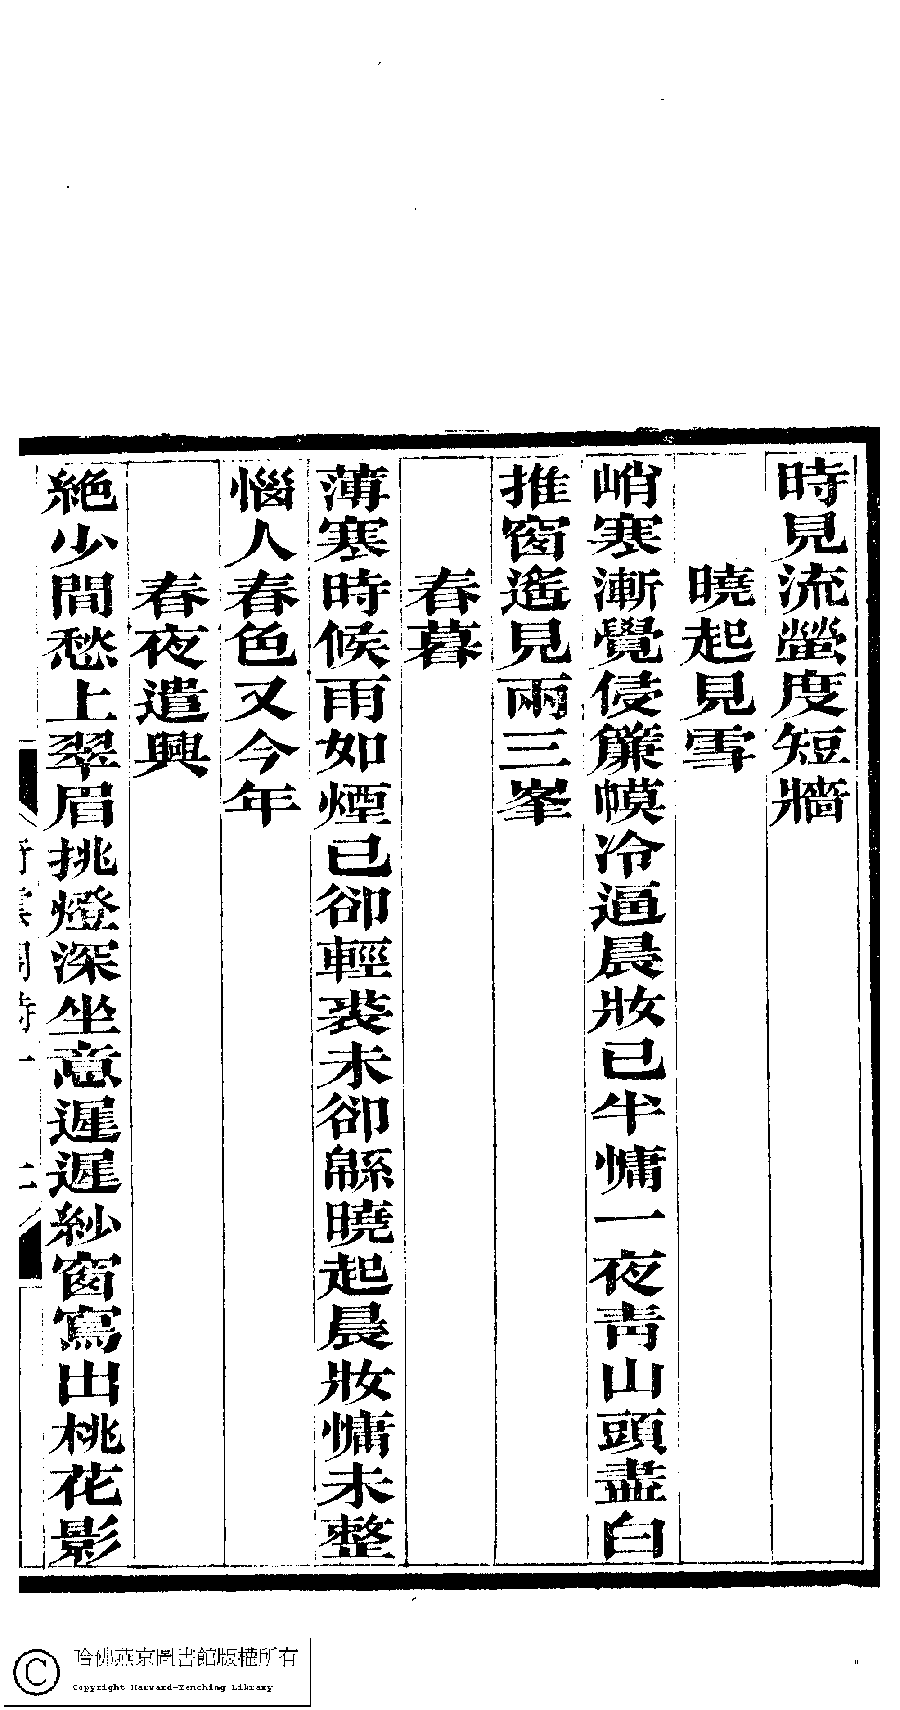 時見流螢度短牆
曉起見雪
峭寒漸覺侵簾幙冷逼晨妝已半慵一夜靑山頭盡白
推窗遙見兩三峯
春暮
薄寒時候雨如煙已卻輕裘未卻緜曉起晨妝慵未整
惱人春色又今年
春夜遣興
絶少閒愁上翠眉挑燈深坐意遲遲紗窗寫出桃花影
哈佛燕京圖書館版權所有
Copyright Harvard-Yenching Library